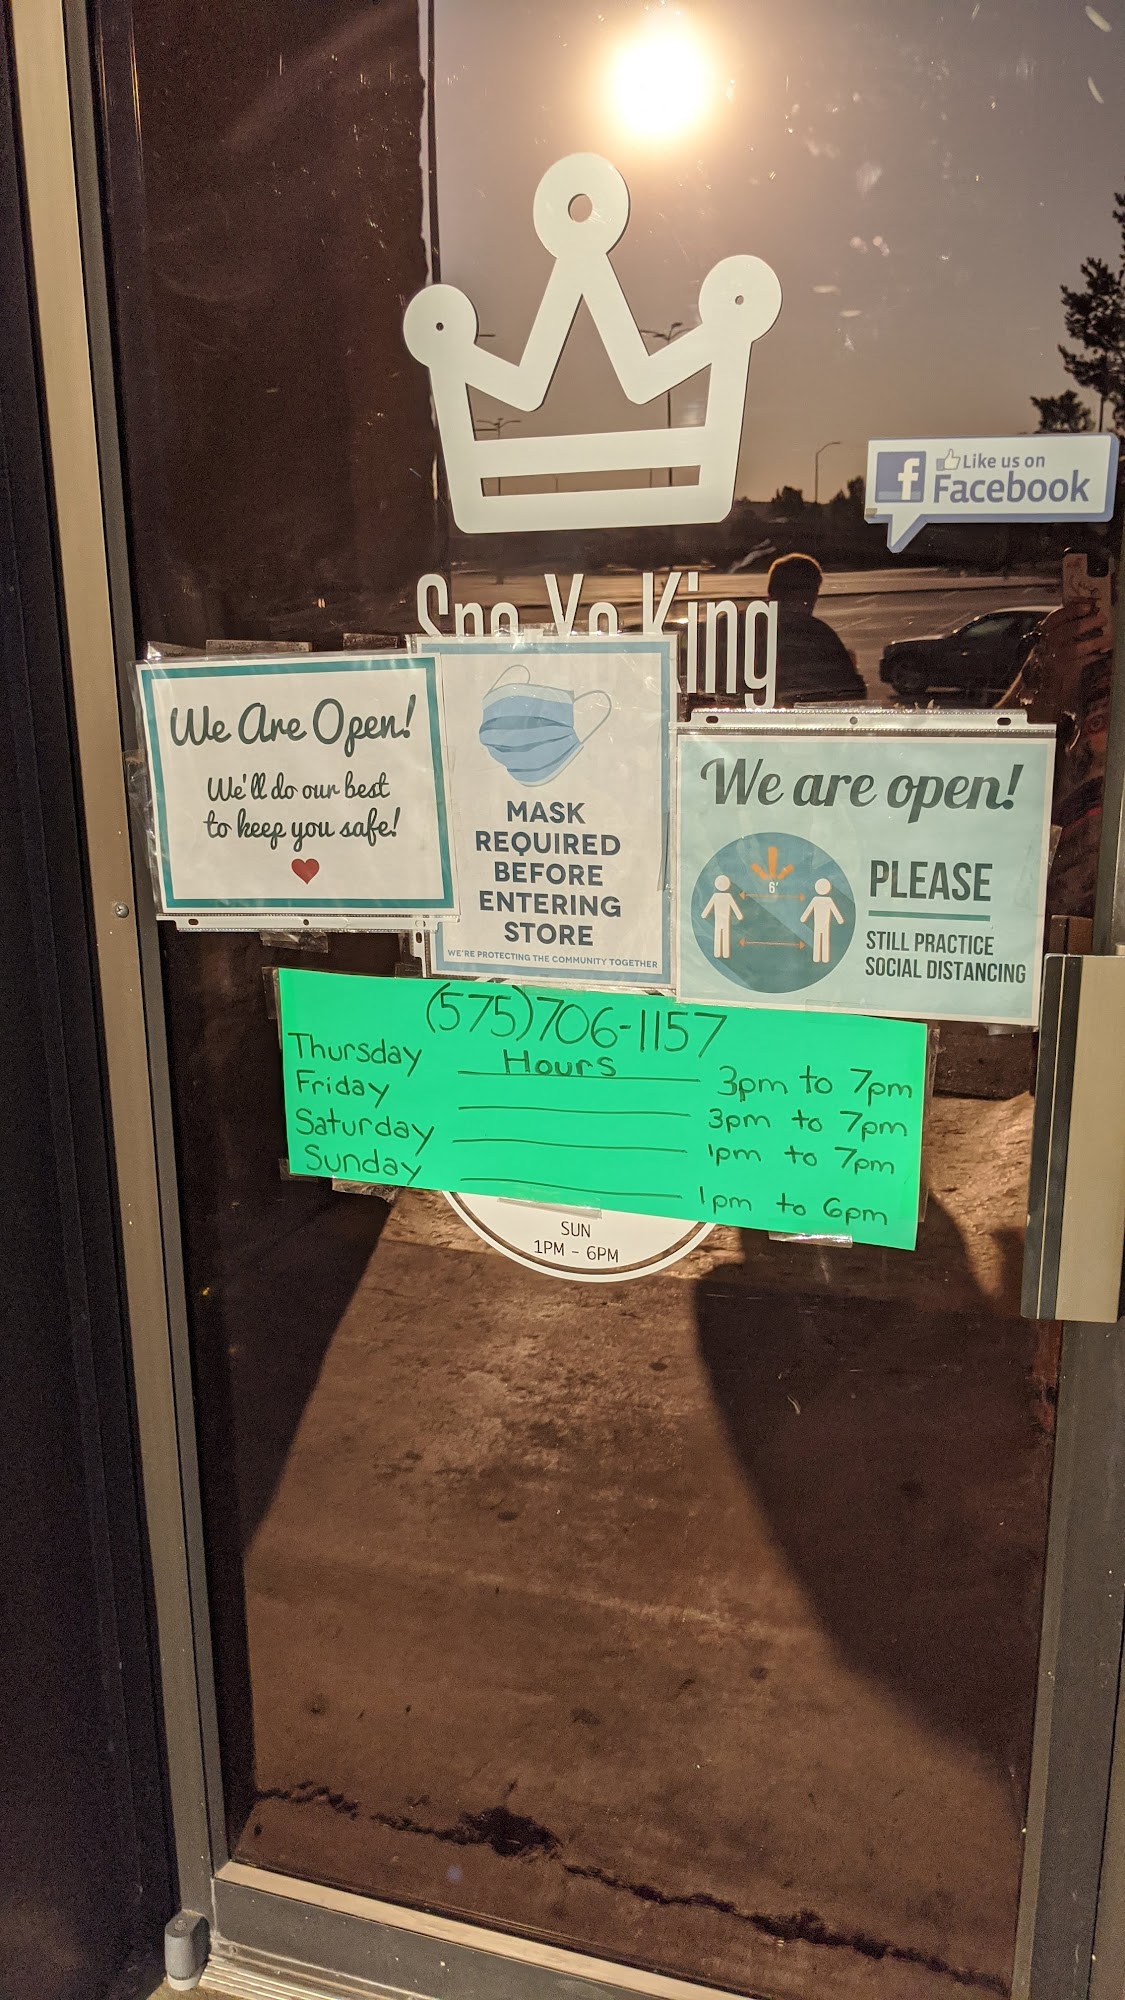 f
Like us on
Facebook
King
We Are Open!
We'll do our best
to keep you safe!
MASK
REQUIRED
BEFORE
ENTERING
STORE
WE'RE PROTECTING THE COMMUNITY TOGETHER
We are open!
6'
PLEASE
STILL PRACTICE
SOCIAL DISTANCING
(575)706-1157
Hours
Thursday 3pm to 7pm
Friday 3pm to 7pm
Saturday 1pm to 7pm
Sunday 1pm to 6pm
SUN
1PM - 6PM